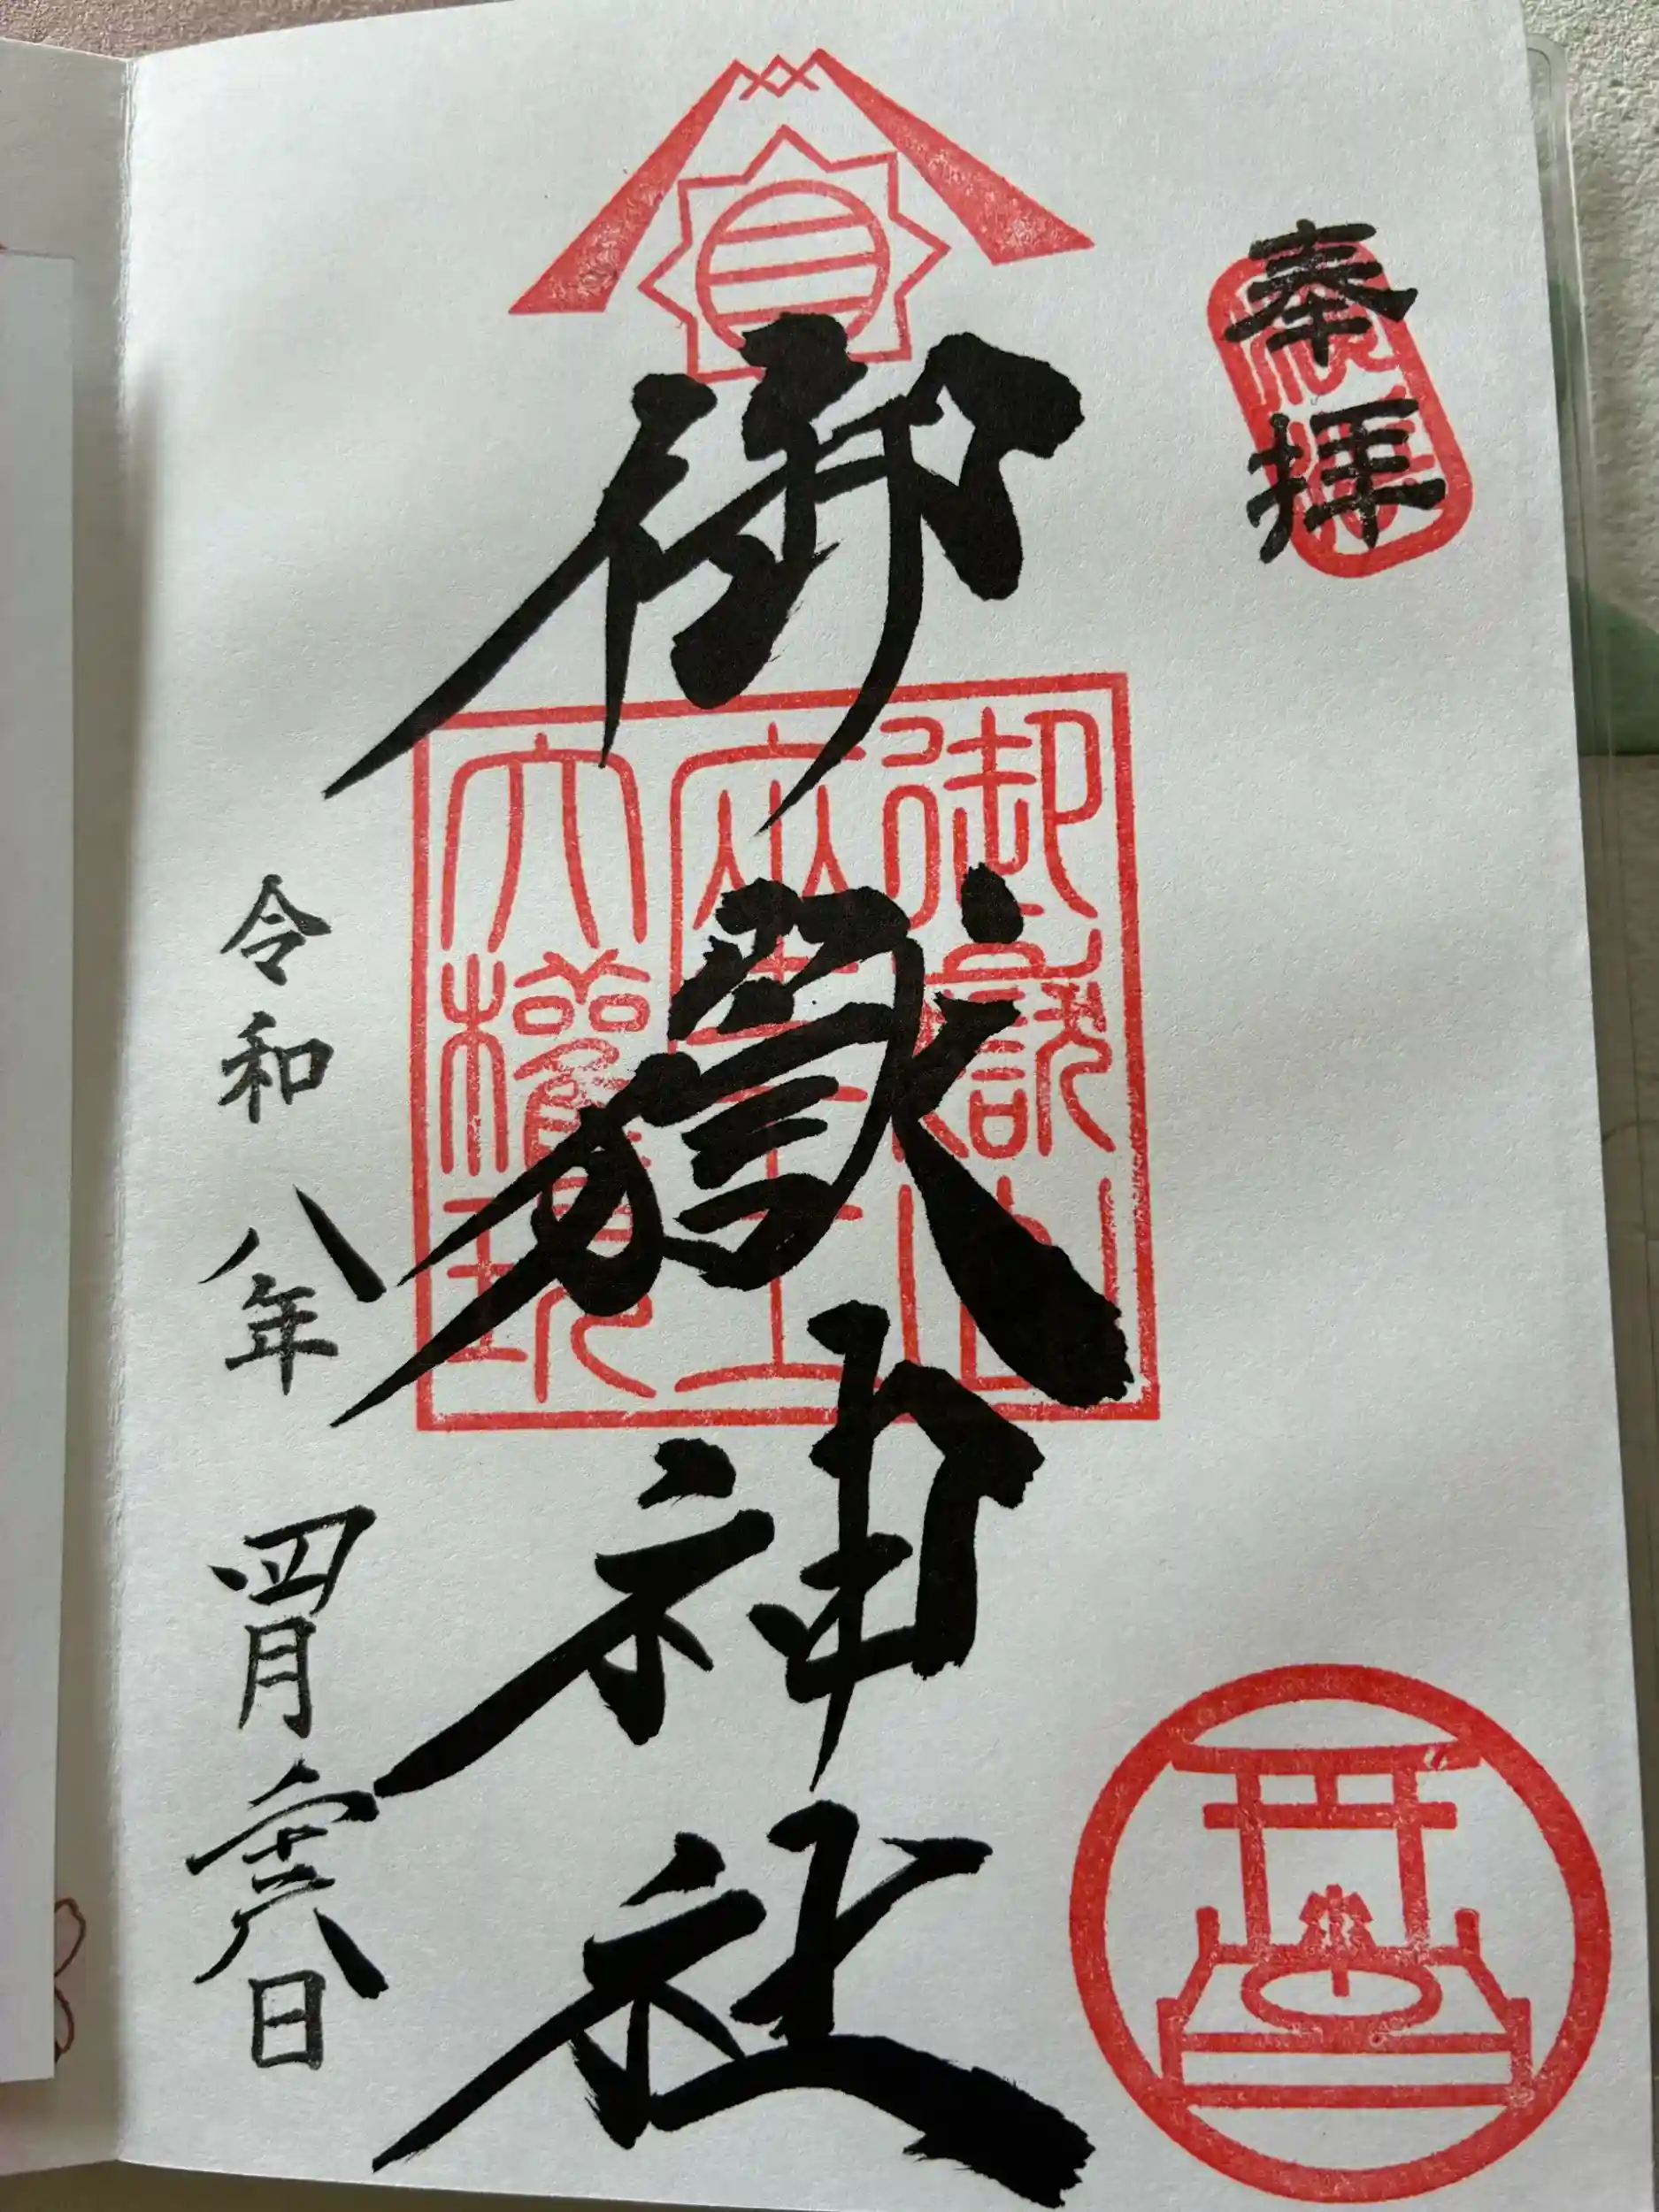 奉拝
御嶽神社
御嶽山
座王
大權現
令和八年四月二十六日